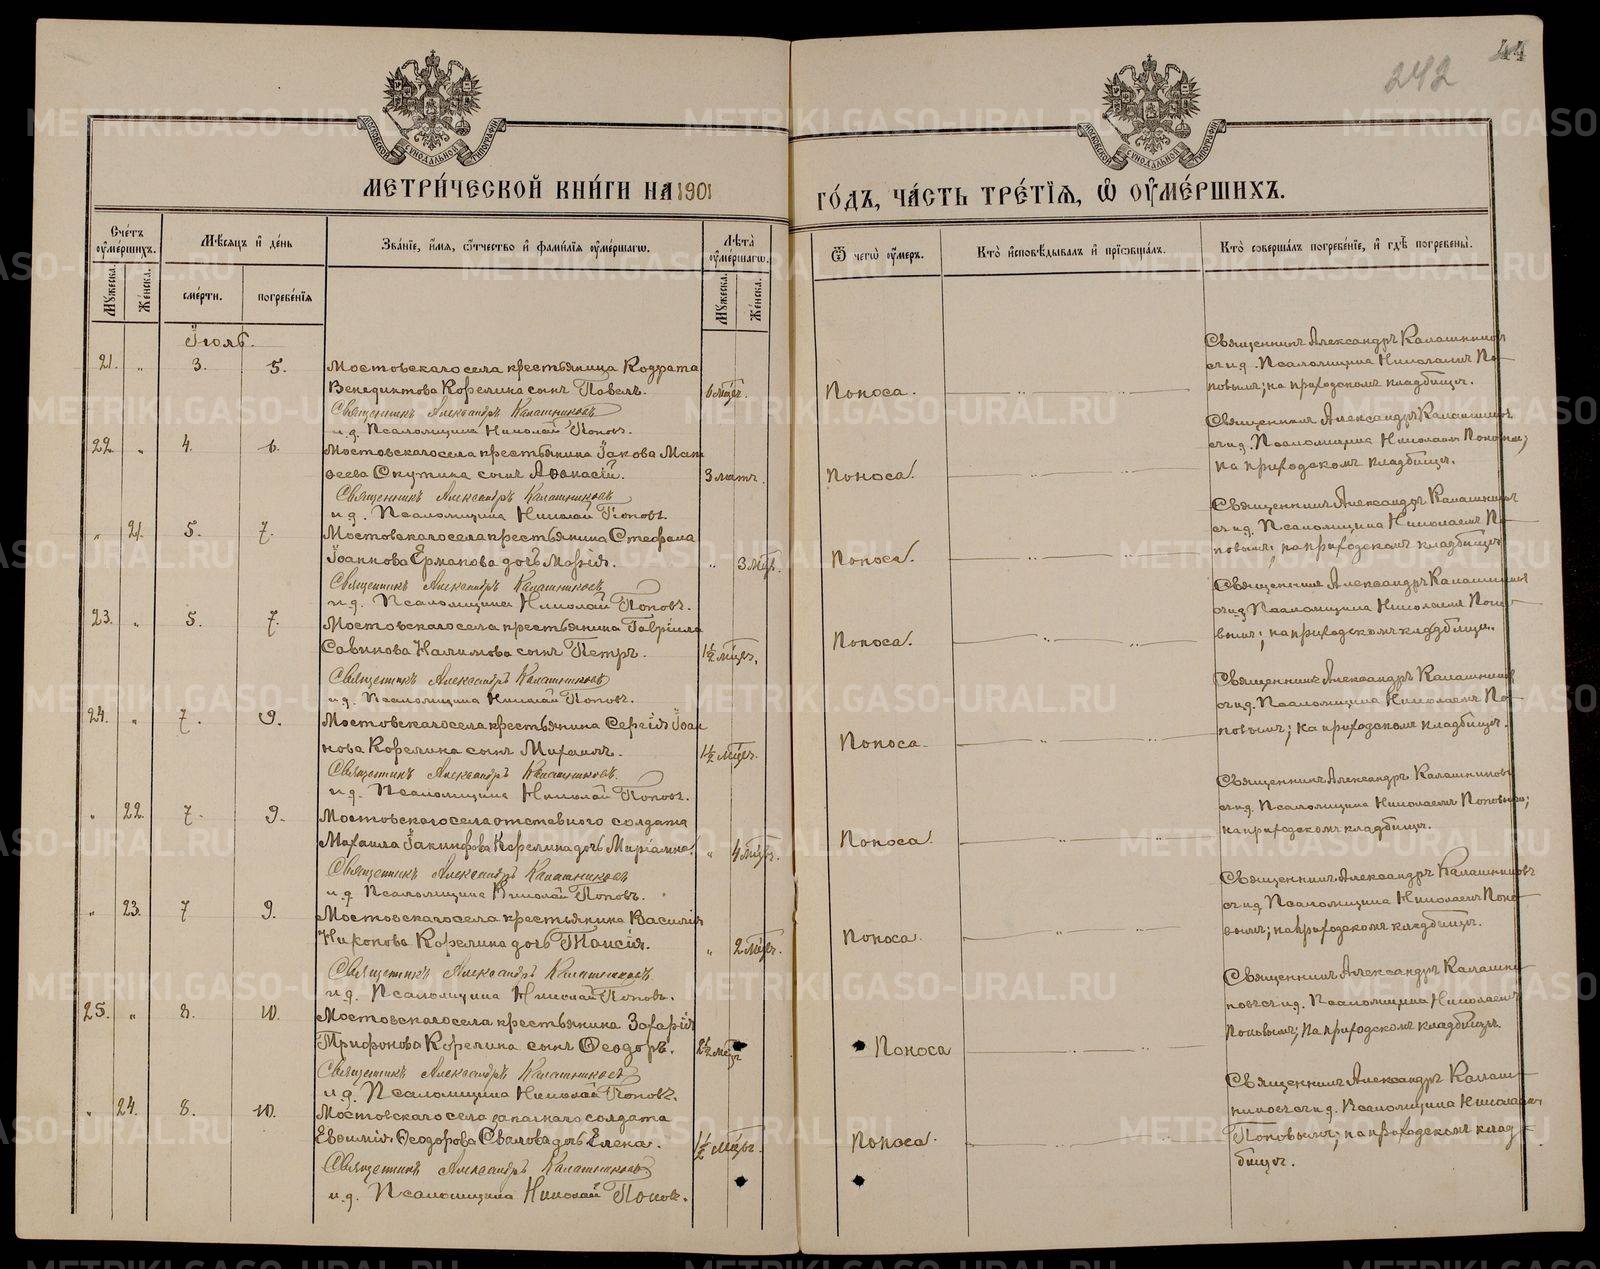 242
44
МОСКОВСКОЙ СѴНОДАЛЬНОЙ ТИПОГРАФІИ
МОСКОВСКОЙ СѴНОДАЛЬНОЙ ТИПОГРАФІИ
МЕТРИ́ЧЕСКОЙ КНИ́ГИ НА 1901
ГО́ДЪ, ЧА́СТЬ ТРЕ́ТІѦ, Ѿ ОУ҆МЕ́РШИХЪ.
Сче́тъ оу҆ме́ршихъ.
Мѣ́сѧцъ и҆ де́нь
Зва́нїе, и҆́мѧ, ѻ҆́тчество и҆ фами́лїѧ оу҆ме́ршагѡ.
Лѣ́та оу҆ме́ршагѡ.
Ѿ чегѡ̀ оу҆́меръ.
Кто̀ и҆сповѣ́дывалъ и҆ прїѡбща́лъ.
Кто̀ соверша́лъ погребе́нїе, и҆ гдѣ̀ погребены̀.
Му́жеска.
Же́нска.
сме́рти.
погребе́нїѧ
Му́жеска.
Же́нска.
Іюль.
21. „ 3. 5. Мостовскаго села крестьянина Кодрата
Венедиктова Корелина сынъ Павелъ. 6 мѣс. Поноса.
Священникъ Александръ Калашниковъ
и.д. Псаломщика Николай Поповъ.
Священникъ Александръ Калашниковъ
съ и.д. Псаломщика Николаемъ По-
повымъ; на приходскомъ кладбищѣ.
22. „ 4. 6. Мостовскаго села крестьянина Іакова Мат-
ѳеева Скутина сынъ Аѳанасій. 3 лѣтъ. Поноса.
Священникъ Александръ Калашниковъ
и.д. Псаломщика Николай Поповъ.
Священникъ Александръ Калашниковъ
съ и.д. Псаломщика Николаемъ Поповымъ;
на приходскомъ кладбищѣ.
„ 21. 5. 7. Мостовскаго села крестьянина Стефана
Іоаннова Ермакова дочь Марія. „ 3 мѣс. Поноса.
Священникъ Александръ Калашниковъ
и.д. Псаломщика Николай Поповъ.
Священникъ Александръ Калашниковъ
съ и.д. Псаломщика Николаемъ По-
повымъ; на приходскомъ кладбищѣ.
23. „ 5. 7. Мостовскаго села крестьянина Гавріила
Савинова Налимова сынъ Петръ. 1½ мѣсяц. Поноса.
Священникъ Александръ Калашниковъ
и.д. Псаломщика Николай Поповъ.
Священникъ Александръ Калашниковъ
съ и.д. Псаломщика Николаемъ Попо-
вымъ; на приходскомъ кладбищѣ.
24. „ 7. 9. Мостовскаго села крестьянина Сергія Іоан-
нова Корелина сынъ Михаилъ. 1½ мѣсяц. Поноса.
Священникъ Александръ Калашниковъ.
и.д. Псаломщика Николай Поповъ.
Священникъ Александръ Калашниковъ
съ и.д. Псаломщика Николаемъ По-
повымъ; на приходскомъ кладбищѣ.
„ 22. 7. 9. Мостовскаго села отставного солдата
Михаила Іакинфова Корелина дочь Маріамна. „ 4 мѣс. Поноса.
Священникъ Александръ Калашниковъ
и.д. Псаломщика Николай Поповъ.
Священникъ Александръ Калашниковъ
съ и.д. Псаломщика Николаемъ Поповымъ;
на приходскомъ кладбищѣ.
„ 23. 7 9. Мостовскаго села крестьянина Василія
Никонова Корелина дочь Таисія. „ 2 мѣс. Поноса.
Священникъ Александръ Калашниковъ.
и.д. Псаломщика Николай Поповъ.
Священникъ Александръ Калашниковъ
съ и.д. Псаломщика Николаемъ Попо-
вымъ; на приходскомъ кладбищѣ.
25. „ 8. 10. Мостовскаго села крестьянина Захарія
Трифонова Корелина сынъ Ѳеодоръ. 2½ мѣс. Поноса
Священникъ Александръ Калашниковъ
и.д. Псаломщика Николай Поповъ.
Священникъ Александръ Калашни-
ковъ съ и.д. Псаломщика Николаемъ
Поповымъ; на приходскомъ кладбищѣ.
„ 24. 8. 10. Мостовскаго села запаснаго солдата
Евѳимія Ѳеодорова Свалова дочь Елена. 1½ мѣс. Поноса.
Священникъ Александръ Калашниковъ
и.д. Псаломщика Николай Поповъ.
Священникъ Александръ Калаш-
никовъ съ и.д. Псаломщика Николаемъ
Поповымъ; на приходскомъ клад-
бищѣ.
METRIKI.GASO-URAL.RU